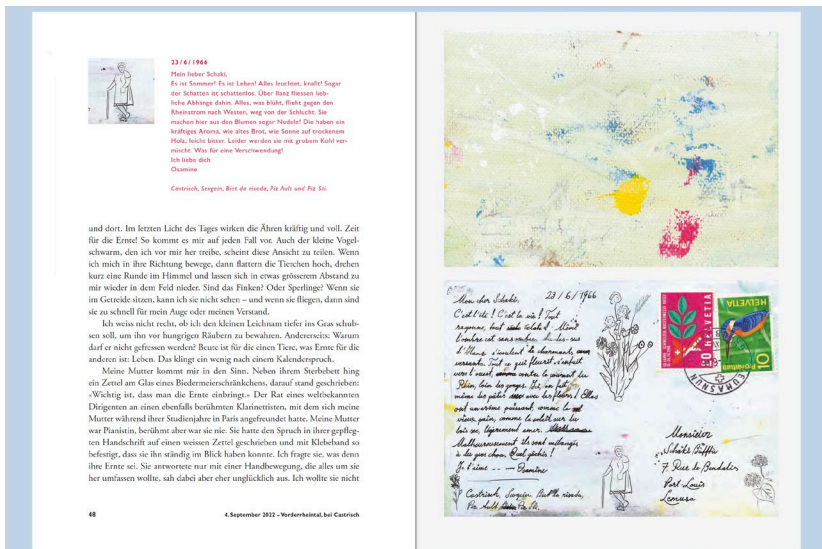 23/6/1966
Mein lieber Schaki,
Es ist Sommer! Es ist Leben! Alles leuchtet, knallt! Sogar
der Schatten ist schattenlos. Über Ilanz fliessen lieb-
liche Abhänge dahin. Alles, was blüht, flieht gegen den
Rheinstrom nach Westen, weg von der Schlucht. Sie
machen hier aus den Blumen sogar Nudeln! Die haben ein
kräftiges Aroma, wie altes Brot, wie Sonne auf trockenem
Holz, leicht bitter. Leider werden sie mit grobem Kohl ver-
mischt. Was für eine Verschwendung!
Ich liebe dich
Osamine
Castrisch, Sevgein, Piz Ault und Piz Sti.
und dort. Im letzten Licht des Tages wirken die Ähren kräftig und voll. Zeit
für die Ernte! So kommt es mir auf jeden Fall vor. Auch der kleine Vogel-
schwarm, den ich vor mir her treibe, scheint diese Ansicht zu teilen. Wenn
ich mich in ihre Richtung bewege, dann flattern die Tierchen hoch, drehen
kurz eine Runde im Himmel und lassen sich in etwas grösserem Abstand zu
mir wieder in dem Feld nieder. Sind das Finken? Oder Sperlinge? Wenn sie
im Getreide sitzen, kann ich sie nicht sehen – und wenn sie fliegen, dann sind
sie zu schnell für mein Auge oder meinen Verstand.
Ich weiss nicht recht, ob ich den kleinen Leichnam tiefer ins Gras schub-
sen soll, um ihn vor hungrigen Räubern zu bewahren. Andererseits: Warum
darf er nicht gefressen werden? Beute ist für die einen Tiere, was Ernte für die
anderen ist: Leben. Das klingt ein wenig nach einem Kalenderspruch.
Meine Mutter kommt mir in den Sinn. Neben ihrem Sterbebett hing
ein Zettel am Glas eines Biedermeierschränkchens, darauf stand geschrieben:
«Wichtig ist, dass man die Ernte einbringt.» Der Rat eines weltbekannten
Dirigenten an einen ebenfalls berühmten Klarinettisten, mit dem sich meine
Mutter während ihrer Studienjahre in Paris angefreundet hatte. Meine Mutter
war Pianistin, berühmt aber war sie nie. Sie hatte den Spruch in ihrer gepfleg-
ten Handschrift auf einen weissen Zettel geschrieben und mit Klebeband so
befestigt, dass sie ihn ständig im Blick haben konnte. Ich fragte sie, was denn
ihre Ernte sei. Sie antwortete nur mit einer Handbewegung, die alles um sie
her umfassen wollte, sah dabei aber eher unglücklich aus. Ich wollte sie nicht
48
4. September 2022 – Vorderrheintal, bei Castrisch
Mon cher Schaki, 23/6/1966
C'est l'été! C'est la vie! Tout
rayonne, tout éclate! Même
l'ombre est sans ombre. Au-dessus
d'Ilanz s'écoulent de charmants
versants. Tout ce qui fleurit s'enfuit
vers l'ouest, contre le courant du
Rhin, loin des gorges. Ici, on fait
même des pâtes avec des fleurs! Elles
ont un arôme puissant, comme le
vieux pain, comme le soleil sur du
bois sec, légèrement amer.
Malheureusement ils sont mélangés
à du gros chou. Quel gâchis!
Je t'aime -- Osamine
Castrisch, Sevgein,
Piz Ault Piz Sti.
HELVETIA
HELVETIA
10
Monsieur
7. Rue de
Port Louis
Lemusa